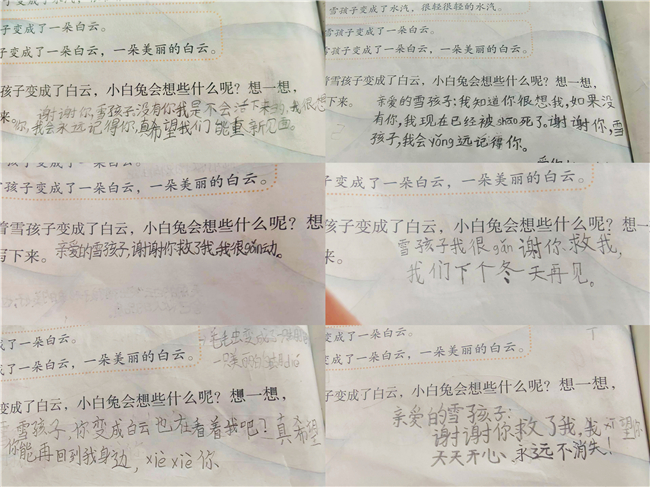 子变成了一朵白云。
子变成了一朵白云，一朵美丽的白云。
孩子变成了白云，小白兔会想些什么呢？想一想，
来。谢谢你，雪孩子没有你我是不会活下来的，我很想
你，我会永远记得你，真希望我们能重新见面。
雪孩子变成了水汽，很轻很轻的水汽。
雪孩子变成了一朵白云。
雪孩子变成了一朵白云，一朵美丽的白云。
雪孩子变成了白云，小白兔会想些什么呢？想一想，
下来。亲爱的雪孩子：我知道你很想我，如果没
有你，我现在已经被shāo死了。谢谢你，雪
孩子，我会yǒng远记得你。
孩子变成了一朵白云，一朵美丽的白云。
雪孩子变成了白云，小白兔会想些什么呢？想
写下来。亲爱的雪孩子，谢谢你救了我，我很gǎn动。
子变成了一朵白云，一朵美丽的白云。
子变成了白云，小白兔会想些什么呢？想一
雪孩子我很gǎn谢你救我，
我们下个冬天再见。
变成了一朵白云。
变成了一朵白云，一朵美丽的白云。
子变成了白云，小白兔会想些什么呢？想一想，
雪孩子，你变成白云也在看着我吧？真希望
你能再回到我身边，xiè xiè 你
变成了一朵白云。
变成了一朵白云，一朵美丽的白云。
子变成了白云，小白兔会想些什么呢？想一想，
亲爱的雪孩子：
谢谢你救了我，我 望你
天天开心、永远不消失！